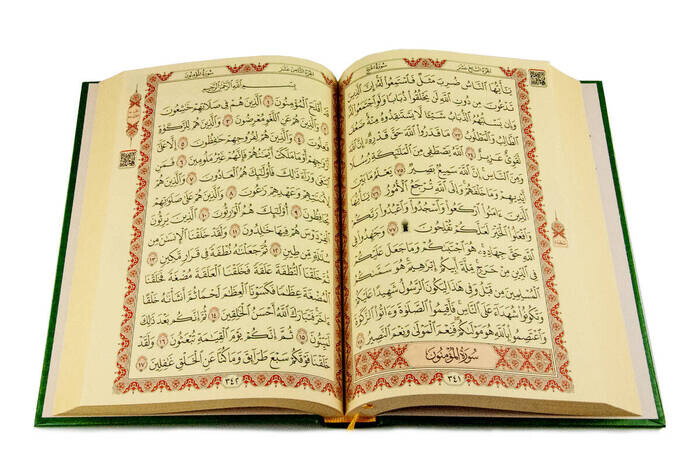 سورة الحج
الجزء السابع عشر
يَٰٓأَيُّهَا ٱلنَّاسُ ضُرِبَ مَثَلٌ فَٱسْتَمِعُوا۟ لَهُۥٓ إِنَّ ٱلَّذِينَ
تَدْعُونَ مِن دُونِ ٱللَّهِ لَن يَخْلُقُوا۟ ذُبَابًا وَلَوِ ٱجْتَمَعُوا۟ لَهُۥ
وَإِن يَسْلُبْهُمُ ٱلذُّبَابُ شَيْـًٔا لَّا يَسْتَنقِذُوهُ مِنْهُ ضَعُفَ
ٱلطَّالِبُ وَٱلْمَطْلُوبُ ٧٣ مَا قَدَرُوا۟ ٱللَّهَ حَقَّ قَدْرِهِۦٓ إِنَّ ٱللَّهَ
لَقَوِىٌّ عَزِيزٌ ٧٤ ٱللَّهُ يَصْطَفِى مِنَ ٱلْمَلَٰٓئِكَةِ رُسُلًا
وَمِنَ ٱلنَّاسِ إِنَّ ٱللَّهَ سَمِيعٌۢ بَصِيرٌ ٧٥ يَعْلَمُ مَا بَيْنَ
أَيْدِيهِمْ وَمَا خَلْفَهُمْ وَإِلَى ٱللَّهِ تُرْجَعُ ٱلْأُمُورُ ٧٦ يَٰٓأَيُّهَا
ٱلَّذِينَ ءَامَنُوا۟ ٱرْكَعُوا۟ وَٱسْجُدُوا۟ وَٱعْبُدُوا۟ رَبَّكُمْ
وَٱفْعَلُوا۟ ٱلْخَيْرَ لَعَلَّكُمْ تُفْلِحُونَ ۩ ٧٧ وَجَٰهِدُوا۟ فِى
ٱللَّهِ حَقَّ جِهَادِهِۦ هُوَ ٱجْتَبَىٰكُمْ وَمَا جَعَلَ عَلَيْكُمْ
فِى ٱلدِّينِ مِنْ حَرَجٍ مِّلَّةَ أَبِيكُمْ إِبْرَٰهِيمَ هُوَ سَمَّىٰكُمُ
ٱلْمُسْلِمِينَ مِن قَبْلُ وَفِى هَٰذَا لِيَكُونَ ٱلرَّسُولُ شَهِيدًا عَلَيْكُمْ
وَتَكُونُوا۟ شُهَدَآءَ عَلَى ٱلنَّاسِ فَأَقِيمُوا۟ ٱلصَّلَوٰةَ وَءَاتُوا۟ ٱلزَّكَوٰةَ
وَٱعْتَصِمُوا۟ بِٱللَّهِ هُوَ مَوْلَىٰكُمْ فَنِعْمَ ٱلْمَوْلَىٰ وَنِعْمَ ٱلنَّصِيرُ ٧٨
سُورَةُ المُؤْمِنُونَ
٣٤١
الجزء الثامن عشر
سورة المؤمنون
بِسْمِ ٱللَّهِ ٱلرَّحْمَٰنِ ٱلرَّحِيمِ
قَدْ أَفْلَحَ ٱلْمُؤْمِنُونَ ١ ٱلَّذِينَ هُمْ فِى صَلَاتِهِمْ خَٰشِعُونَ
٢ وَٱلَّذِينَ هُمْ عَنِ ٱللَّغْوِ مُعْرِضُونَ ٣ وَٱلَّذِينَ هُمْ لِلزَّكَوٰةِ
فَٰعِلُونَ ٤ وَٱلَّذِينَ هُمْ لِفُرُوجِهِمْ حَٰفِظُونَ ٥ إِلَّا عَلَىٰٓ
أَزْوَٰجِهِمْ أَوْ مَا مَلَكَتْ أَيْمَٰنُهُمْ فَإِنَّهُمْ غَيْرُ مَلُومِينَ ٦ فَمَنِ
ٱبْتَغَىٰ وَرَآءَ ذَٰلِكَ فَأُو۟لَٰٓئِكَ هُمُ ٱلْعَادُونَ ٧ وَٱلَّذِينَ هُمْ
لِأَمَٰنَٰتِهِمْ وَعَهْدِهِمْ رَٰعُونَ ٨ وَٱلَّذِينَ هُمْ عَلَىٰ صَلَوَٰتِهِمْ
يُحَافِظُونَ ٩ أُو۟لَٰٓئِكَ هُمُ ٱلْوَٰرِثُونَ ١٠ ٱلَّذِينَ يَرِثُونَ
ٱلْفِرْدَوْسَ هُمْ فِيهَا خَٰلِدُونَ ١١ وَلَقَدْ خَلَقْنَا ٱلْإِنسَٰنَ مِن
سُلَٰلَةٍ مِّن طِينٍ ١٢ ثُمَّ جَعَلْنَٰهُ نُطْفَةً فِى قَرَارٍ مَّكِينٍ ١٣
ثُمَّ خَلَقْنَا ٱلنُّطْفَةَ عَلَقَةً فَخَلَقْنَا ٱلْعَلَقَةَ مُضْغَةً فَخَلَقْنَا
ٱلْمُضْغَةَ عِظَٰمًا فَكَسَوْنَا ٱلْعِظَٰمَ لَحْمًا ثُمَّ أَنشَأْنَٰهُ خَلْقًا
ءَاخَرَ فَتَبَارَكَ ٱللَّهُ أَحْسَنُ ٱلْخَٰلِقِينَ ١٤ ثُمَّ إِنَّكُم بَعْدَ ذَٰلِكَ
لَمَيِّتُونَ ١٥ ثُمَّ إِنَّكُمْ يَوْمَ ٱلْقِيَٰمَةِ تُبْعَثُونَ ١٦ وَلَقَدْ
خَلَقْنَا فَوْقَكُمْ سَبْعَ طَرَآئِقَ وَمَا كُنَّا عَنِ ٱلْخَلْقِ غَٰفِلِينَ ١٧
٣٤٢